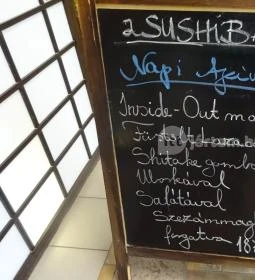 aSUSHIBA
Napi
Inside-Out ma
Füstölt
Shitake gombá
Uborkával
Salátával
Szezámmag
forgatva 18